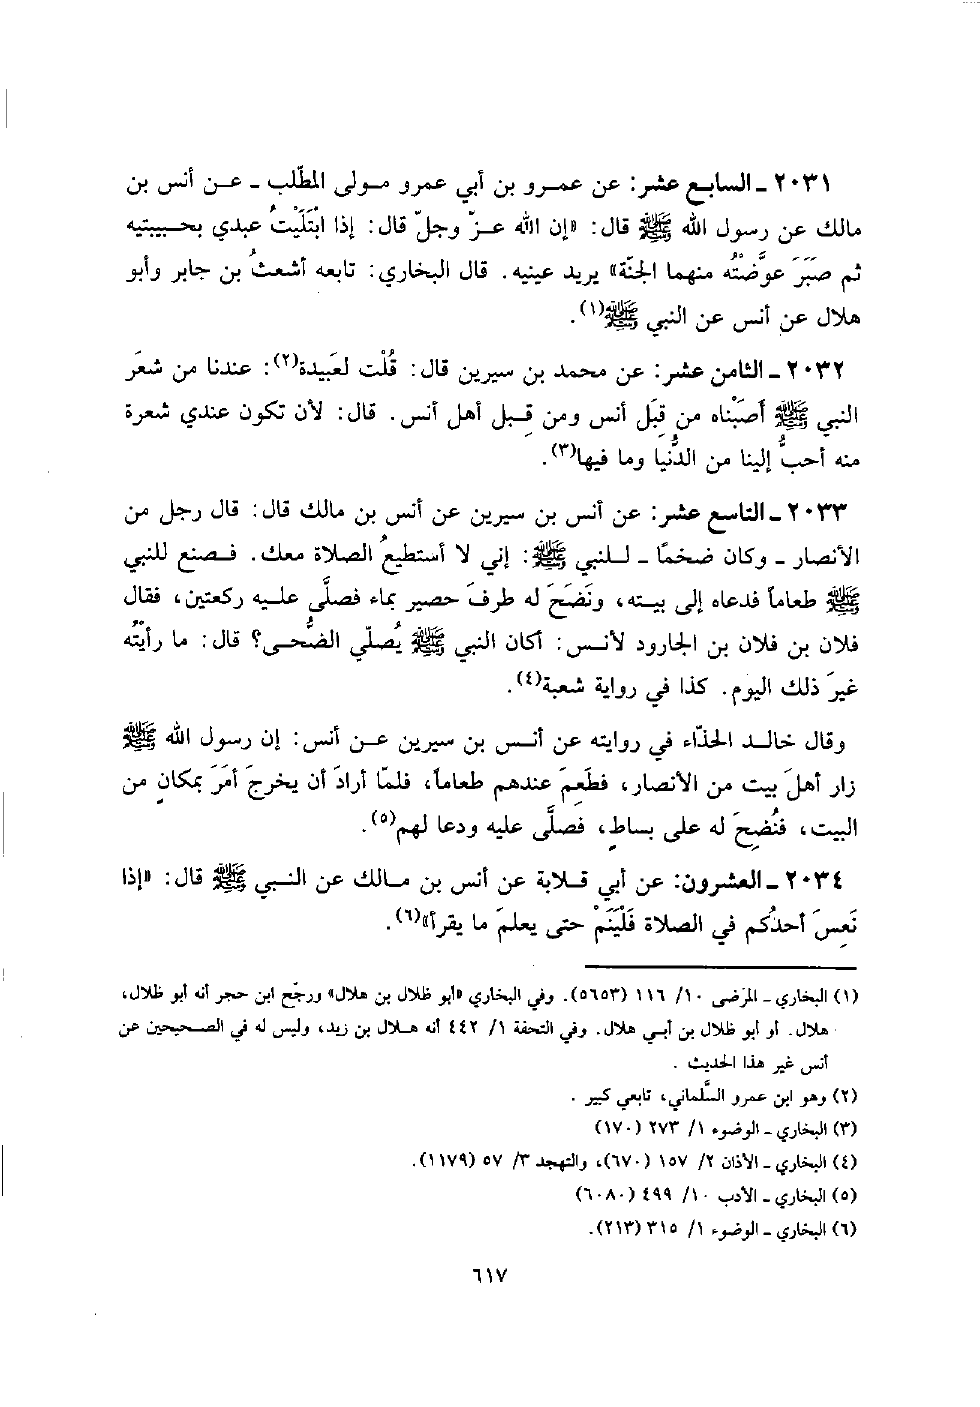 ٢٠٣١ ـ السابع عشر: عن عمرو بن أبي عمرو مولى المطّلب ـ عن أنس بن
مالك عن رسول الله ﷺ قال: «إن الله عزّ وجلّ قال: إذا ابْتَلَيْتُ عبدي بحبيبتيه
ثم صَبَرَ عوَّضْتُه منهما الجنّة» يريد عينيه. قال البخاري: تابعه أشعثُ بن جابر وأبو
هلال عن أنس عن النبي ﷺ(١).
٢٠٣٢ ـ الثامن عشر: عن محمد بن سيرين قال: قُلْت لعَبيدة(٢): عندنا من شعَر
النبي ﷺ أَصَبْناه من قِبَل أنس ومن قِبل أهل أنس. قال: لأن تكون عندي شعرة
منه أحبُّ إلينا من الدُّنيا وما فيها(٣).
٢٠٣٣ ـ التاسع عشر: عن أنس بن سيرين عن أنس بن مالك قال: قال رجل من
الأنصار ـ وكان ضخمًا ـ للنبي ﷺ: إني لا أستطيعُ الصلاة معك. فصنع للنبي
ﷺ طعاماً فدعاه إلى بيته، ونَضَحَ له طرفَ حصير بماء فصلَّى عليه ركعتين، فقال
فلان بن فلان بن الجارود لأنس: أكان النبي ﷺ يُصلّي الضُّحى؟ قال: ما رأيتُه
غيرَ ذلك اليوم. كذا في رواية شعبة(٤).
وقال خالد الحذّاء في روايته عن أنس بن سيرين عن أنس: إن رسول الله ﷺ
زار أهلَ بيت من الأنصار، فطَعِمَ عندهم طعاماً، فلمّا أرادَ أن يخرجَ أمَرَ بمكانٍ من
البيت، فنُضِحَ له على بساطٍ، فصلَّى عليه ودعا لهم(٥).
٢٠٣٤ ـ العشرون: عن أبي قلابة عن أنس بن مالك عن النبي ﷺ قال: «إذا
نَعِسَ أحدُكم في الصلاة فَلْيَنَمْ حتى يعلمَ ما يقرأ»(٦).
(١) البخاري ـ المرضى ١٠/ ١١٦ (٥٦٥٣). وفي البخاري «أبو ظلال بن هلال» ورجّح ابن حجر أنه أبو ظلال،
هلال. أو أبو ظلال بن أبي هلال. وفي التحفة ١/ ٤٤٢ أنه هلال بن زيد، وليس له في الصحيحين عن
أنس غير هذا الحديث .
(٢) وهو ابن عمرو السَّلماني، تابعي كبير .
(٣) البخاري ـ الوضوء ١/ ٢٧٣ (١٧٠)
(٤) البخاري ـ الأذان ٢/ ١٥٧ (٦٧٠)، والتهجد ٣/ ٥٧ (١١٧٩).
(٥) البخاري ـ الأدب ١٠/ ٤٩٩ (٦٠٨٠)
(٦) البخاري ـ الوضوء ١/ ٣١٥ (٢١٣).
٦١٧